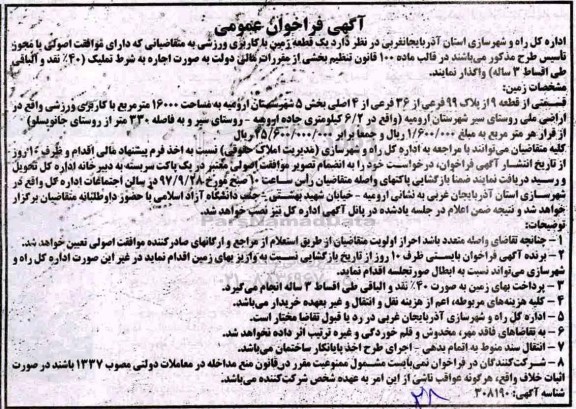 آگهی فراخوان عمومی
اداره کل راه و شهرسازی استان آذربایجانغربی در نظر دارد یک قطعه زمین با کاربری ورزشی به متقاضیانی که دارای موافقت اصولی یا مجوز
تأسیس طرح مذکور می‌باشند در قالب ماده ۱۰۰ قانون تنظیم بخشی از مقررات مالی دولت به صورت اجاره به شرط تملیک (۴۰٪ نقد و الباقی
طی اقساط ۳ ساله) واگذار نمایند.
مشخصات زمین:
قسمتی از قطعه ۹ از پلاک ۹۹ فرعی از ۳۶ فرعی از ۴ اصلی بخش ۵ شهرستان ارومیه به مساحت ۱۶۰۰۰ مترمربع با کاربری ورزشی واقع در
اراضی ملی روستای سیر شهرستان ارومیه (واقع در ۶/۲ کیلومتری جاده ارومیه - روستای سیر و به فاصله ۳۳۰ متر از روستای جانویسلو)
از قرار هر متر مربع به مبلغ ۱/۶۰۰/۰۰۰ ریال و جمعا برابر ۲۵/۶۰۰/۰۰۰/۰۰۰ ریال
کلیه متقاضیان می‌توانند با مراجعه به اداره کل راه و شهرسازی (مدیریت املاک حقوقی) نسبت به اخذ فرم پیشنهاد مالی اقدام و ظرف ۱۰ روز
از تاریخ انتشار آگهی فراخوان، درخواست خود را به انضمام تصویر موافقت اصولی معتبر در یک پاکت سربسته به دبیرخانه اداره کل تحویل
و رسید دریافت نمایند ضمنا بازگشایی پاکتهای واصله متقاضیان رأس ساعت ۱۰ صبح مورخ ۹۷/۹/۲۸ در سالن اجتماعات اداره کل واقع در
شهرسازی استان آذربایجان غربی به نشانی ارومیه - خیابان شهید بهشتی - جنب دانشگاه آزاد اسلامی با حضور داوطلبانه متقاضیان برگزار
خواهد شد و نتیجه ضمن اعلام در جلسه یادشده در پانل آگهی اداره کل نیز نصب خواهد شد.
توضیحات:
۱- چنانچه تقاضای واصله متعدد باشد احراز اولویت متقاضیان از طریق استعلام از مراجع و ارگانهای صادرکننده موافقت اصولی تعیین خواهد شد.
۲- برنده آگهی فراخوان بایستی ظرف ۱۰ روز از تاریخ بازگشایی نسبت به واریز بهای زمین اقدام نماید در غیر این صورت اداره کل راه و
شهرسازی می‌تواند نسبت به ابطال صورتجلسه اقدام نماید.
۳- پرداخت بهای زمین به صورت ۴۰٪ نقد و الباقی طی اقساط ۳ ساله انجام می‌گیرد.
۴- کلیه هزینه‌های مربوطه، اعم از هزینه نقل و انتقال و غیر بعهده خریدار می‌باشد.
۵- اداره کل راه و شهرسازی آذربایجان غربی در رد یا قبول تقاضا مختار است.
۶- به تقاضاهای فاقد مهر، مخدوش و قلم خوردگی و غیره ترتیب اثر داده نخواهد شد.
۷- انتقال سند منوط به اتمام بدهی - اجرای طرح اخذ پایانکار ساختمان می‌باشد.
۸- شرکت‌کنندگان در فراخوان نمی‌بایست مشمول ممنوعیت مقرر در قانون منع مداخله در معاملات دولتی مصوب ۱۳۳۷ باشند در صورت
اثبات خلاف واقع، هرگونه عواقب ناشی از این امر به عهده شخص شرکت‌کننده می‌باشد.
شناسه آگهی: ۳۰۸۱۹۰
۲۸
ParsNamadData